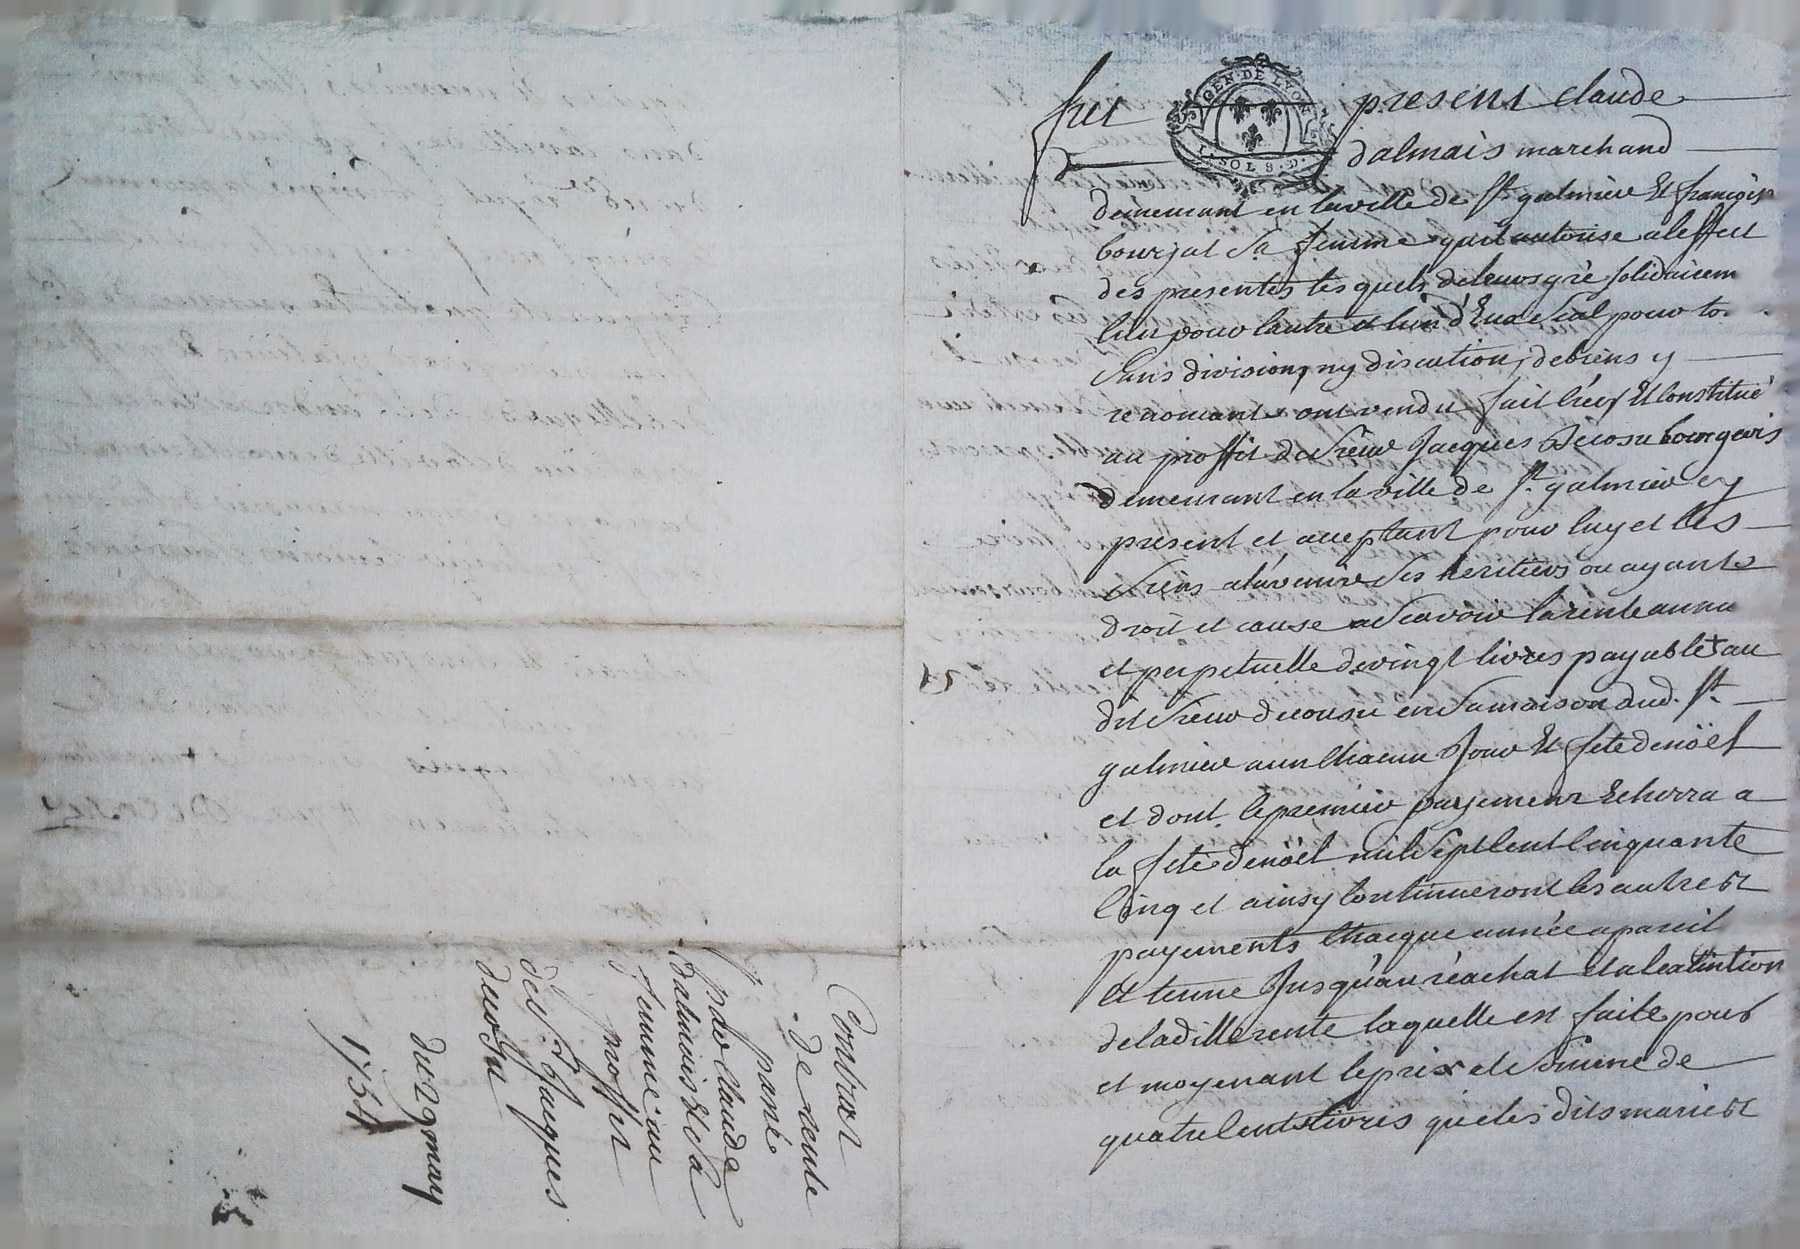 fut present claude
GEN. DE LYON
1. SOLS. D.
dalmais marchand
demeurant en la ville de St galmier Et françoise
bourjat Sa femme quil autorise a leffect
des presentes les quels de leurs gré solidairem
lun pour lautre et lun d'Eux Seul pour to
Sans division, ny discution, de biens y
renomant ont vendu fait Créé Et Constitué
au proffit de Sieur Jacques Decosu bourgeois
demeurant en la ville de St galmier cy
present et acceptant pour luy et les
Siens a l'avenir Ses heritiers ou ayant
droit et cause a Scavoir la rente annu
et perpetuelle de vingt livres payable + au
dit Sieur decousu en Sa maison dud. St
galmier a un Chacun Jour Et fete de noël
et dont le premier payement Echerra a
la fete de noël mil Sept Cent Cinquante
Cinq et ainsy Continueront les autres
payements Chacque année a pareil
Et terme Jusqu'au réachat et a lextintion
de la ditte rente laquelle est faite pour
et moyenant le prix et Somme de
quatre Cents livres que les dits mariés
Contrat
de rente
passé
par claude
Dalmais Et Sa
femme au
proffit
de Sr Jacques
decosu
du 29 may
1754